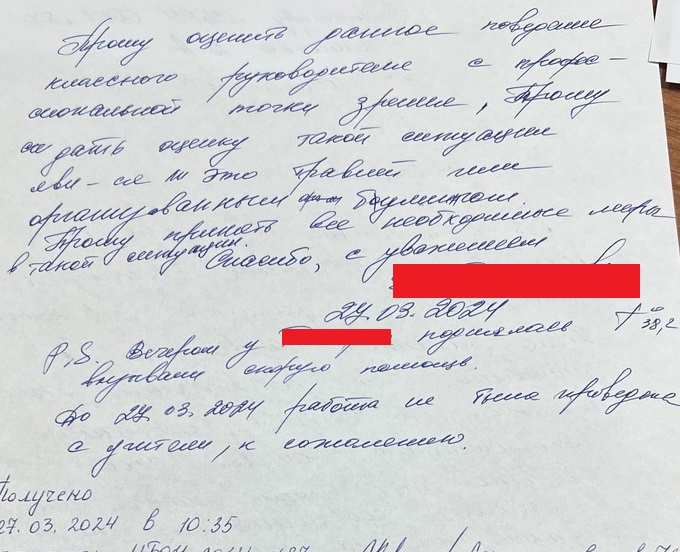 Прошу оценить данное поведение
классного руководителя с профес-
сиональной точки зрения, Прошу
дать оценку такой ситуации
яви-ся ли это травлей или
организованным буллингом.
Прошу принять все необходимые меры
в такой ситуации.
Спасибо, с уважением
27.03.2024
P.S. Вечером у поднялась t° 38,2
вызывали скорую помощь.
До 27.03.2024 работа не была проведена
с учителем, к сожалению.
Получено
27.03.2024 в 10:35